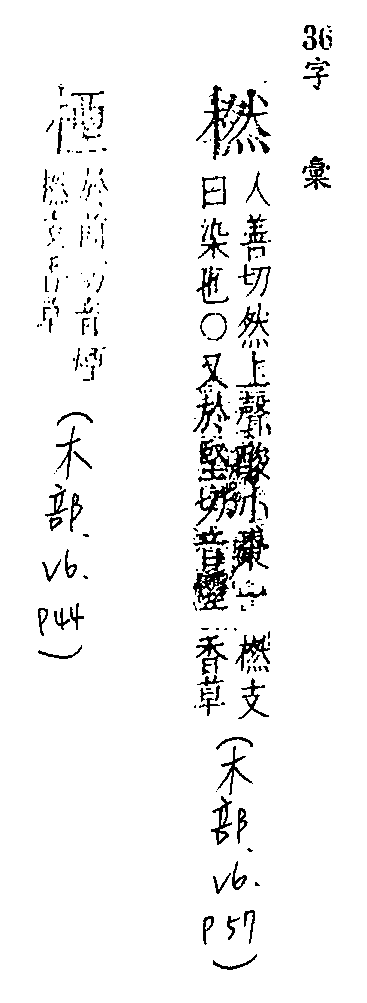 36字　彙
橪
人善切然上聲酸小棗
曰染也○又於堅切音
橪支
香草
(木部. v6. P57)
於前切音煙
橪支香草
(木部. v6. P44)